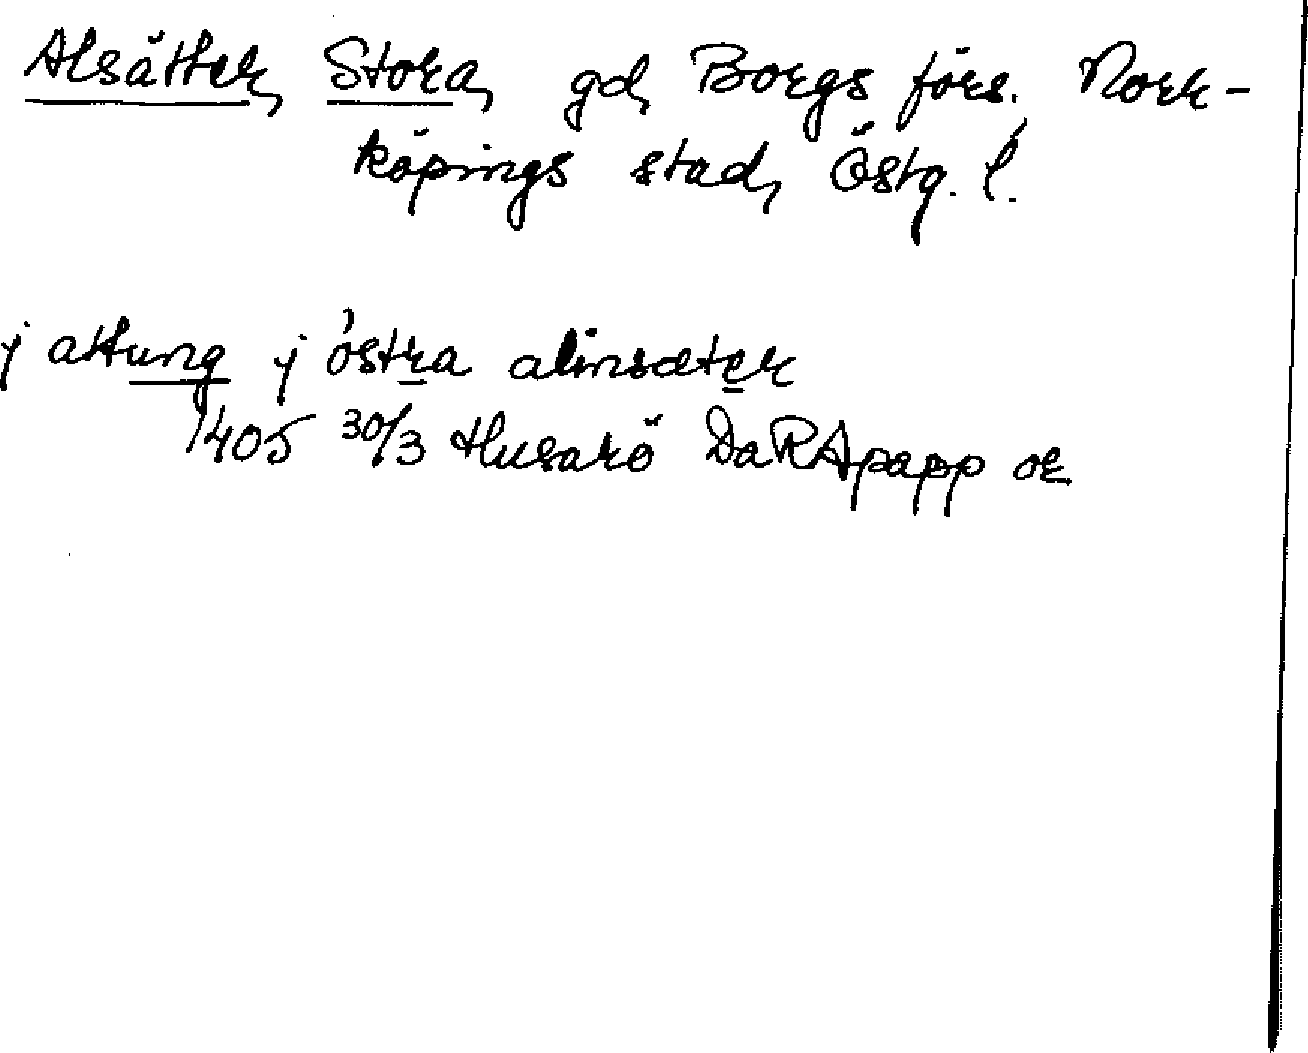 Alsätter, Stora, gd, Borgs förs., Norr-
köpings stad, Östg. l.
j attung j östra alinsæter
1405 30/3 Husarö DaRApapp or